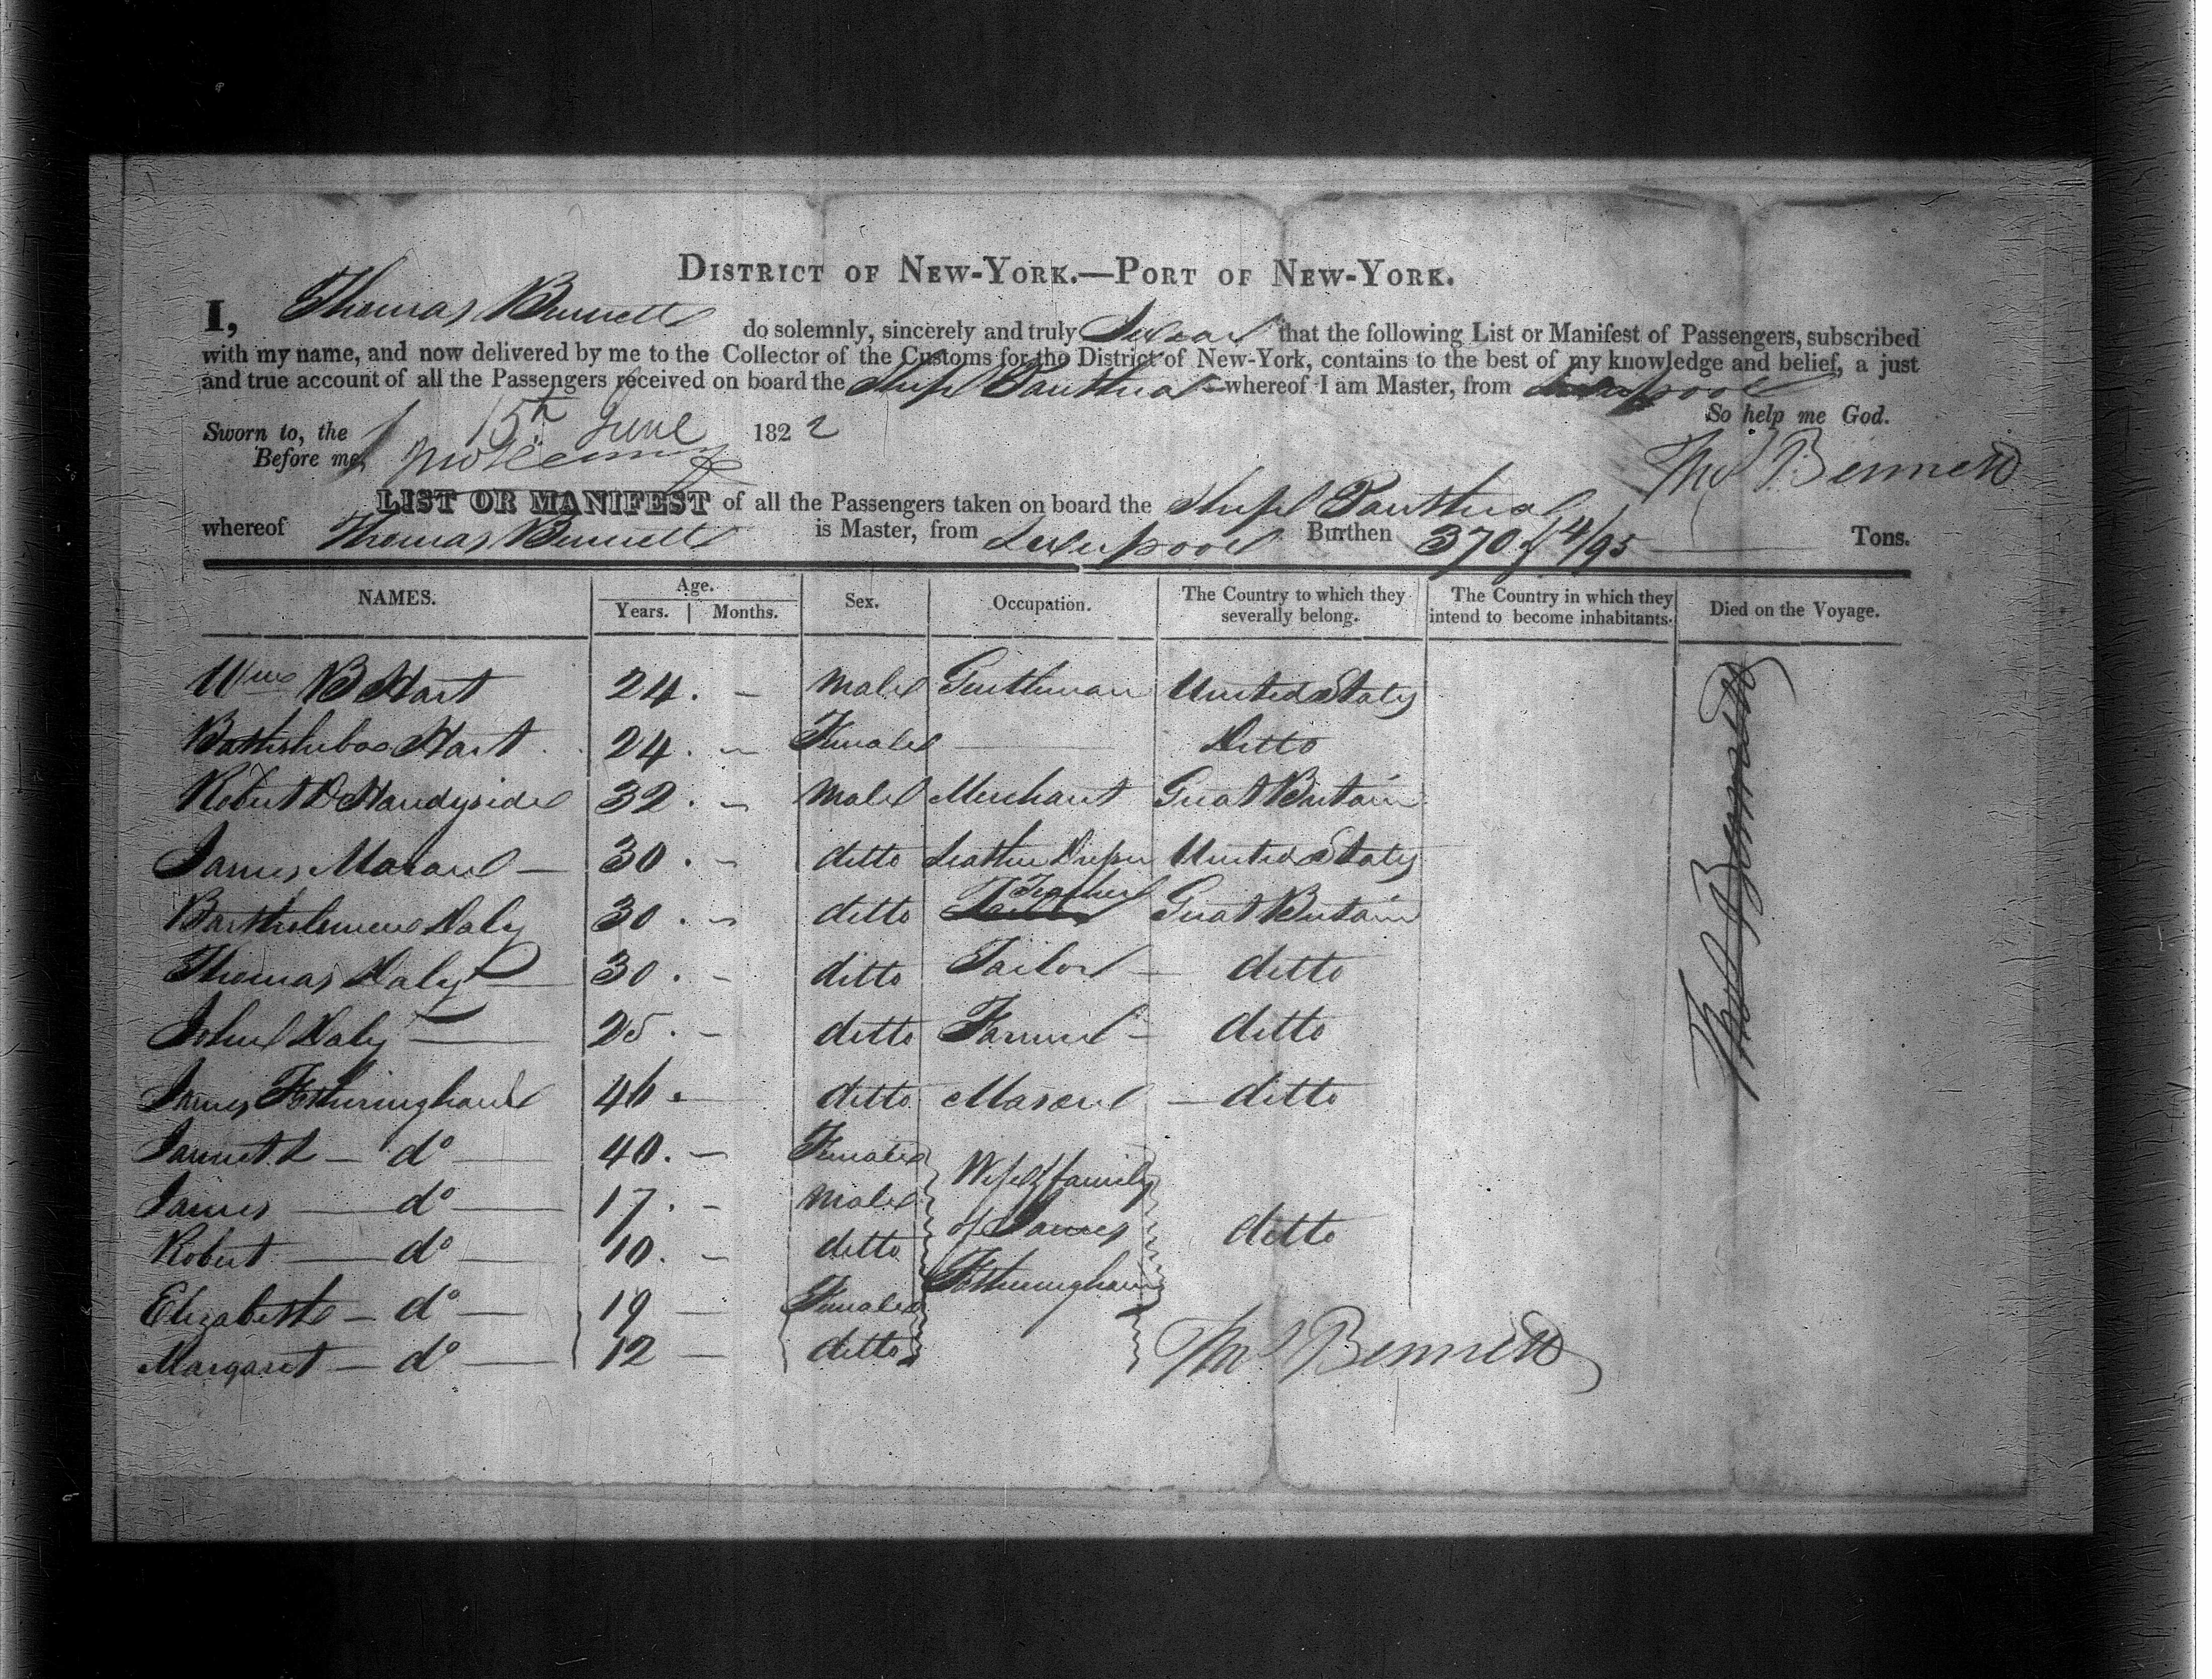 DISTRICT OF NEW-YORK.—PORT OF NEW-YORK.
I, Thomas Bennett do solemnly, sincerely and truly Swear that the following List or Manifest of Passengers, subscribed
with my name, and now delivered by me to the Collector of the Customs for the District of New-York, contains to the best of my knowledge and belief, a just
and true account of all the Passengers received on board the Ship Panthea whereof I am Master, from Liverpool
So help me God.
Sworn to, the 15th June 1822
Before me,
Thos Bennett
LIST OR MANIFEST of all the Passengers taken on board the Ship Panthea
whereof Thomas Bennett is Master, from Liverpool Burthen 370 14/95 Tons.
NAMES. Age. Years. Months. Sex. Occupation. The Country to which they severally belong. The Country in which they intend to become inhabitants. Died on the Voyage.
Wm B Hart 24. - Male Gentleman United States
Bathsheba Hart 24. - Female — Ditto
Robert D Handyside 32. - Male Merchant Great Britain
James Mason — 30. - ditto Leather Dresser United States
Bartholemew Daly 30. - ditto Teacher Great Britain
Thomas Daly — 30. - ditto Tailor — ditto
John Daly — 25. - ditto Farmer — ditto
James Fotheringham 46. - ditto Mason — ditto
Jannet — do — 40. - Female
James — do — 17. - Male
Robert — do — 10. - ditto
Elizabeth — do — 19 — Female
Margaret — do — 12 — ditto
Wife & family
of James
Fotheringham
ditto
Thos Bennett
Thos Bennett